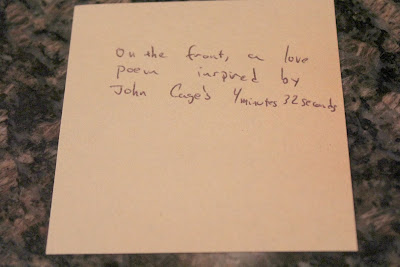 On the front, a love
poem inspired by
John Cage's 4minutes 32seconds